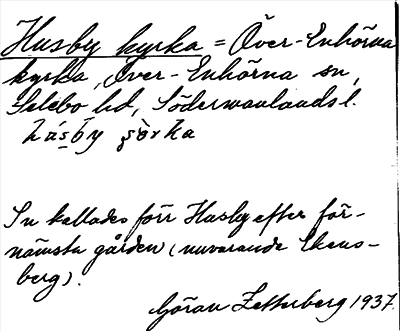 Husby kyrka = Över-Enhörna
kyrka, Över-Enhörna sn,
Selebo hd, Södermanlands l.
húsby
Sn kallades förr Husby efter för-
nämsta gården (nuvarande Ekens-
berg).
Göran Zetterberg 1937.